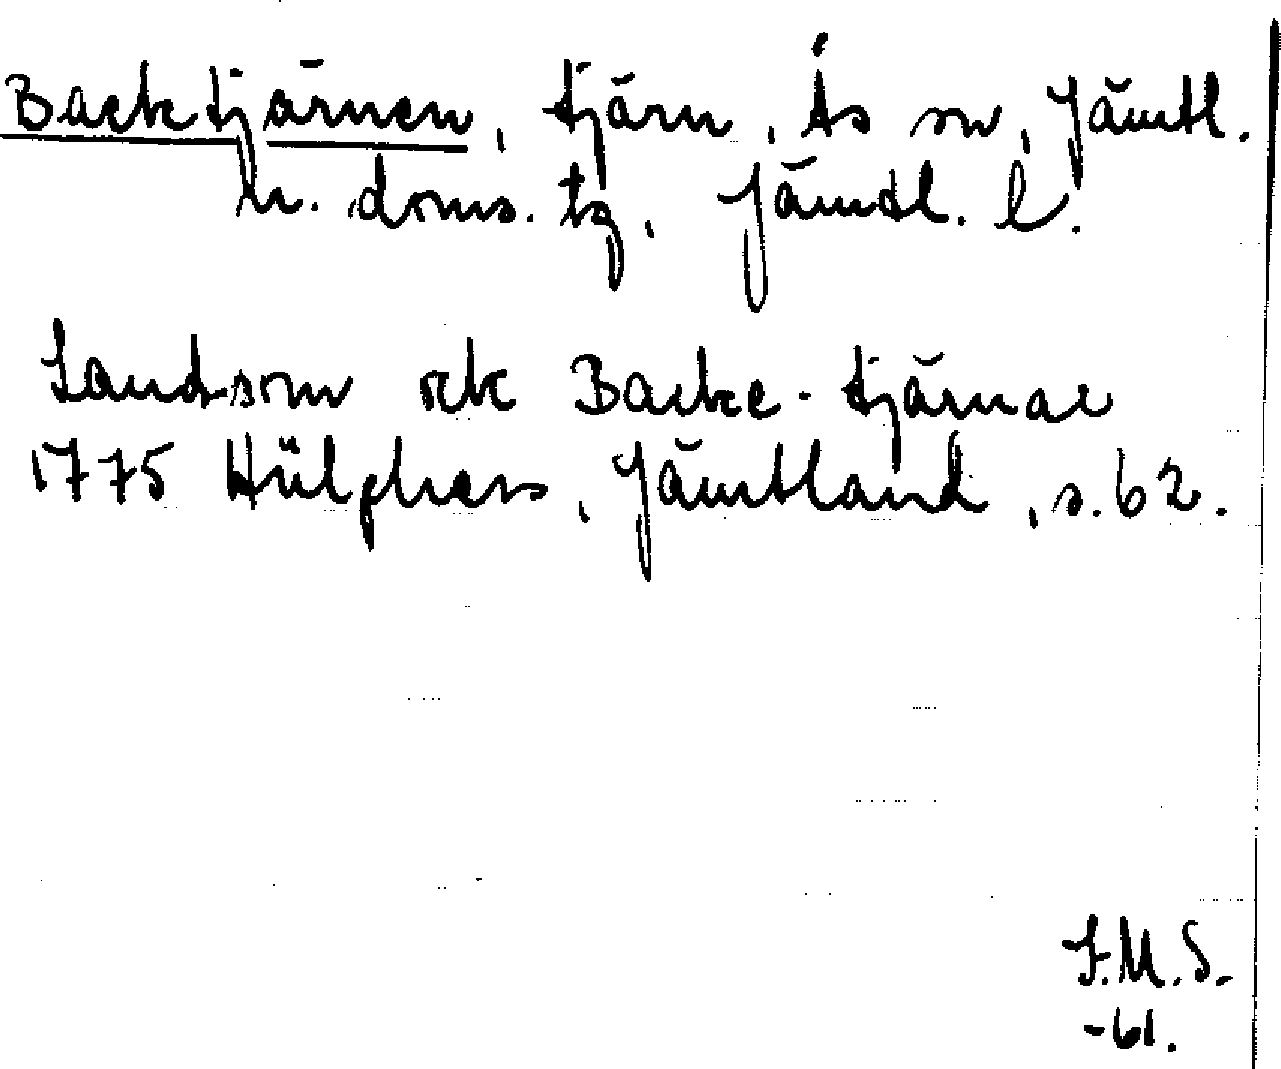 Backtjärnen, tjärn, Ås sn, Jämtl.
n. doms. tg, Jämtl. l.
Landsom ock Backe-tjärnar
1775 Hülphers, Jämtland, s. 62.
I.M.S.
-61.